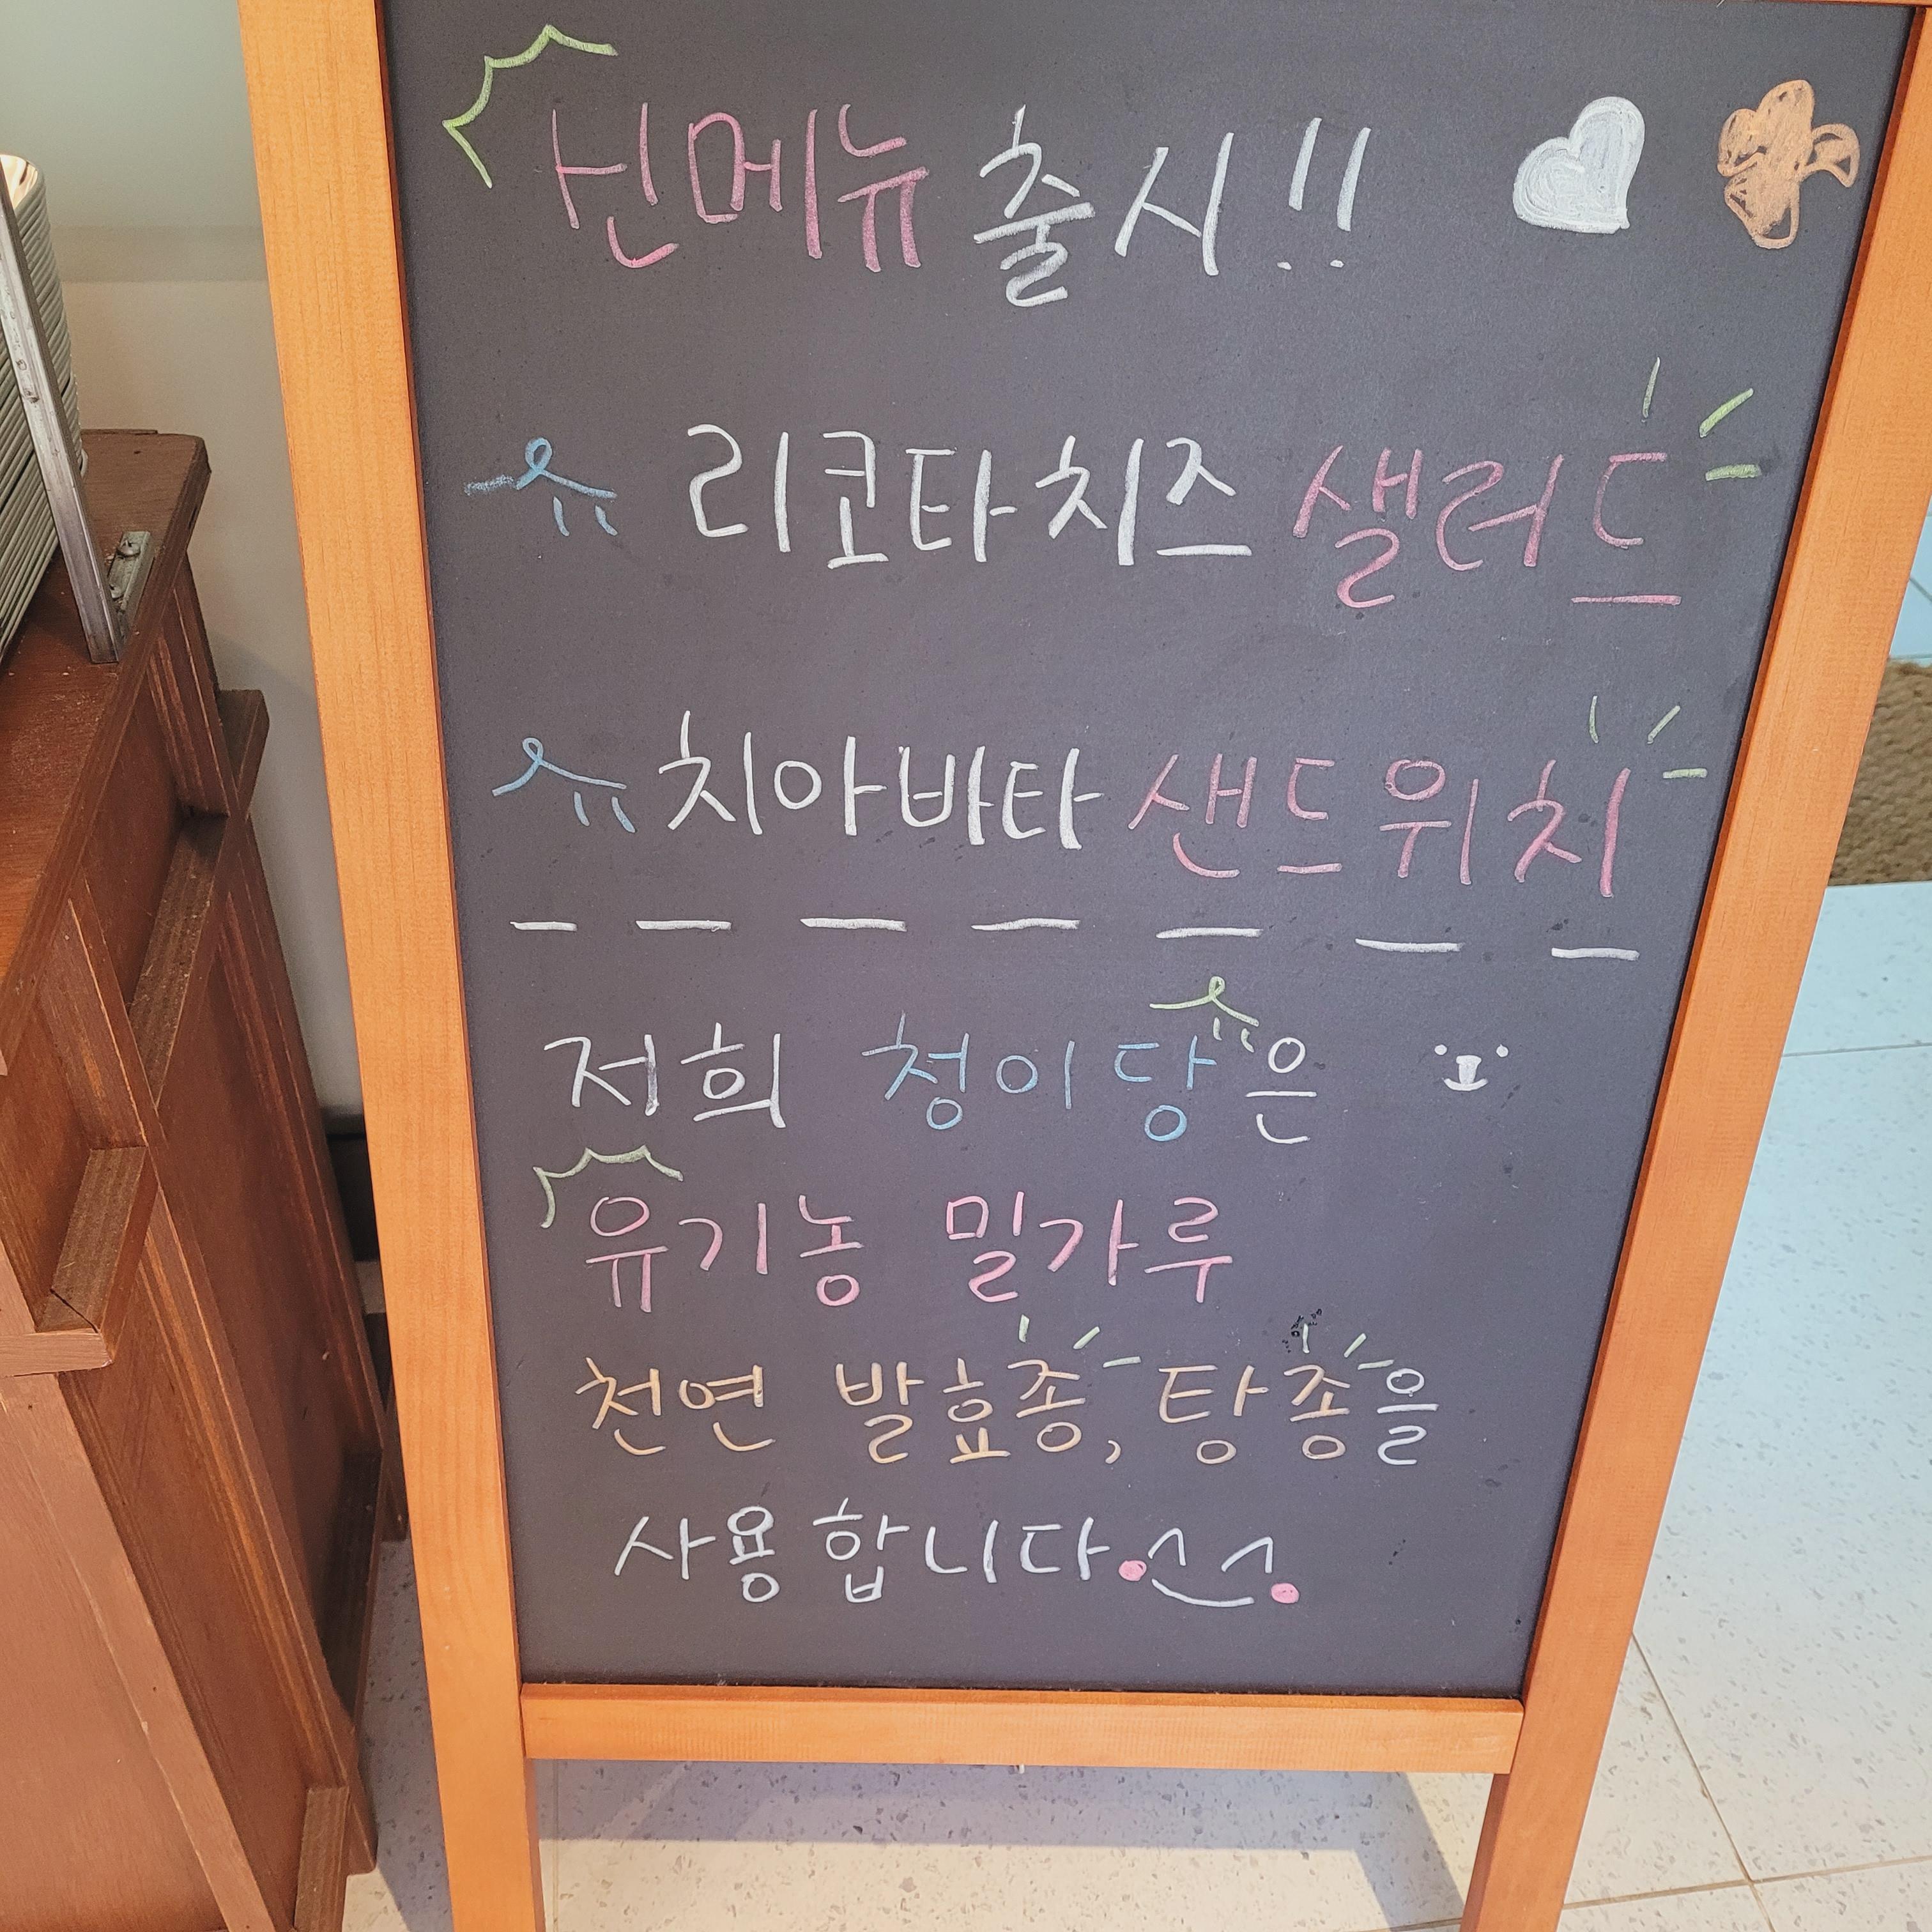 신메뉴 출시!!
리코타치즈 샐러드
치아바타 샌드위치
저희 청이당은
유기농 밀가루
천연 발효종, 탕종을
사용합니다